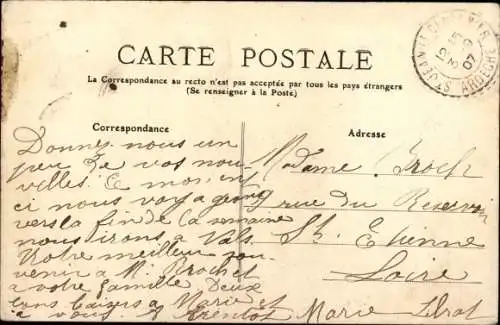 CARTE POSTALE
La Correspondance au recto n'est pas acceptée par tous les pays étrangers
(Se renseigner à la Poste)
Correspondance
Adresse
ARDECHE
07
Donnez nous un
peu de vos nou
velles. Ce moment
ci nous voyageons
vers la fin de la semaine
nous irons a Vals
Notre meilleur sou-
venir a M. Brochet
a votre famille Deux
bons baisers a Marie et
a vous.
Marie
Madame Broch
9 rue du Reservoir
St. Etienne
Loire